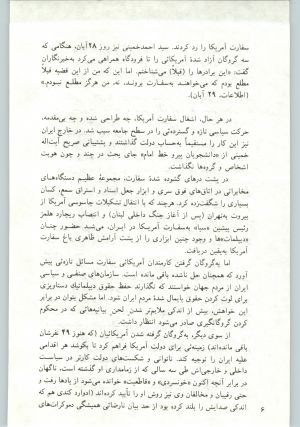 سفارت آمریکا را رد کردند. سید احمدخمینی نیز روز ۲۸آبان، هنگامی که
سه گروگان آزاد شدۀ آمریکائی را تا فرودگاه همراهی می‌کرد به‌خبرنگاران
گفت: «این برادرها را (قبلاً) می‌شناختم. اما این که من از این قضیه قبلاً
مطلع بودم که می‌خواهند به‌سفارت بروند، نه. من هرگز مطلع نبودم.»
(اطلاعات، ۲۹ آبان).
در هر حال، اشغال سفارت آمریکا، چه طراحی شده و چه بی‌مقدمه،
حرکت سیاسی تازه و گسترده‌ئی را در سطح جامعه سبب شد. در خارج ایران
نیز این کار را مستقیماً به‌حساب دولت گذاشتند و پشتیبانی صریح آیت‌الله
خمینی از «دانشجویان پیرو خط امام» جای بحث در چند و چون هویت
اشخاص و گروه‌ها نگذاشت.
در پشت درهای گشوده شدۀ سفارت، مجموعۀ عظیم دستگاه‌های
مخابراتی در اتاق‌های فوق سری و ابزار جعل اسناد و استراق سمع، کسان
بسیاری را شگفت‌زده کرد. هرچند که با انتقال تشکیلات جاسوسی آمریکا از
بیروت به‌تهران (پس از آغاز جنگ داخلی لبنان) و انتصاب ریچارد هلمز
رئیس پیشین «سیا» به‌سفارت آمریکا در ایران، می‌شد حضور چنان
«دیپلمات»‌ها و وجود چنین ابزاری را از پشت آرامش ظاهری باغ سفارت
آمریکا به‌یقین دریافت.
اما به‌گروگان گرفتن کارمندان آمریکائی سفارت مسائل تازه‌ئی پیش
آورد که همچنان حل ناشده باقی مانده است. سازمان‌های صنفی و سیاسی
ایران از مردم جهان خواستند که نگذارند حفظ حقوق دیپلماتیک دستاویزی
برای لوث کردن حقوق پایمال شدۀ مردم ایران شود. اما مشکل بتوان در برابر
این خواهش، بیش از اندکی ملایم‌تر شدن لحن بیانیه‌هائی که در محکوم
کردن گروگانگیری صادر می‌شود انتظار داشت.
از سوی دیگر، به‌گروگان گرفته شدن آمریکائیان (که هنوز ۴۹ نفرشان
باقی مانده‌اند) زمینه‌ئی برای دولت آمریکا فراهم کرد تا یکوشد هر اقدامی
علیه ایران را توجیه کند. ناتوانی و شکست‌های دولت کارتر در سیاست
داخلی و خارجی‌اش طی سه سالی که از زمامداری او گذشته است، ناگهان
در برابر آنچه اکنون «خونسردی» و «قاطعیت» خوانده می‌شود از یادها رفت و
حتی رقیبان و مخالفان وی نیز روش او را تأیید کرده‌اند (ادوارد کندی هم که
اندکی صدایش را بلند کرده بود از حد بیان نارضائی همیشگی دموکرات‌های
۶